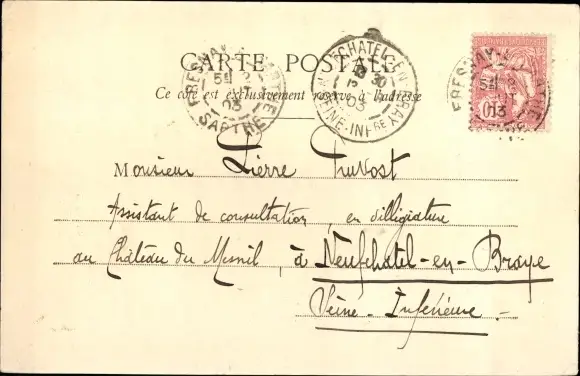 CARTE POSTALE
Ce côté est exclusivement réservé à l'adresse
FRESNAY SARTHE
03
SARTHE
NEUFCHATEL-EN-BRAY
30
03
SEINE-INFRE
FRESNAY SARTHE
10
03
Monsieur Pierre Pruvost
Assistant de consultation, en villégiature
au Château du Mesnil, à Neufchatel-en-Braye
Seine-Inférieure.-